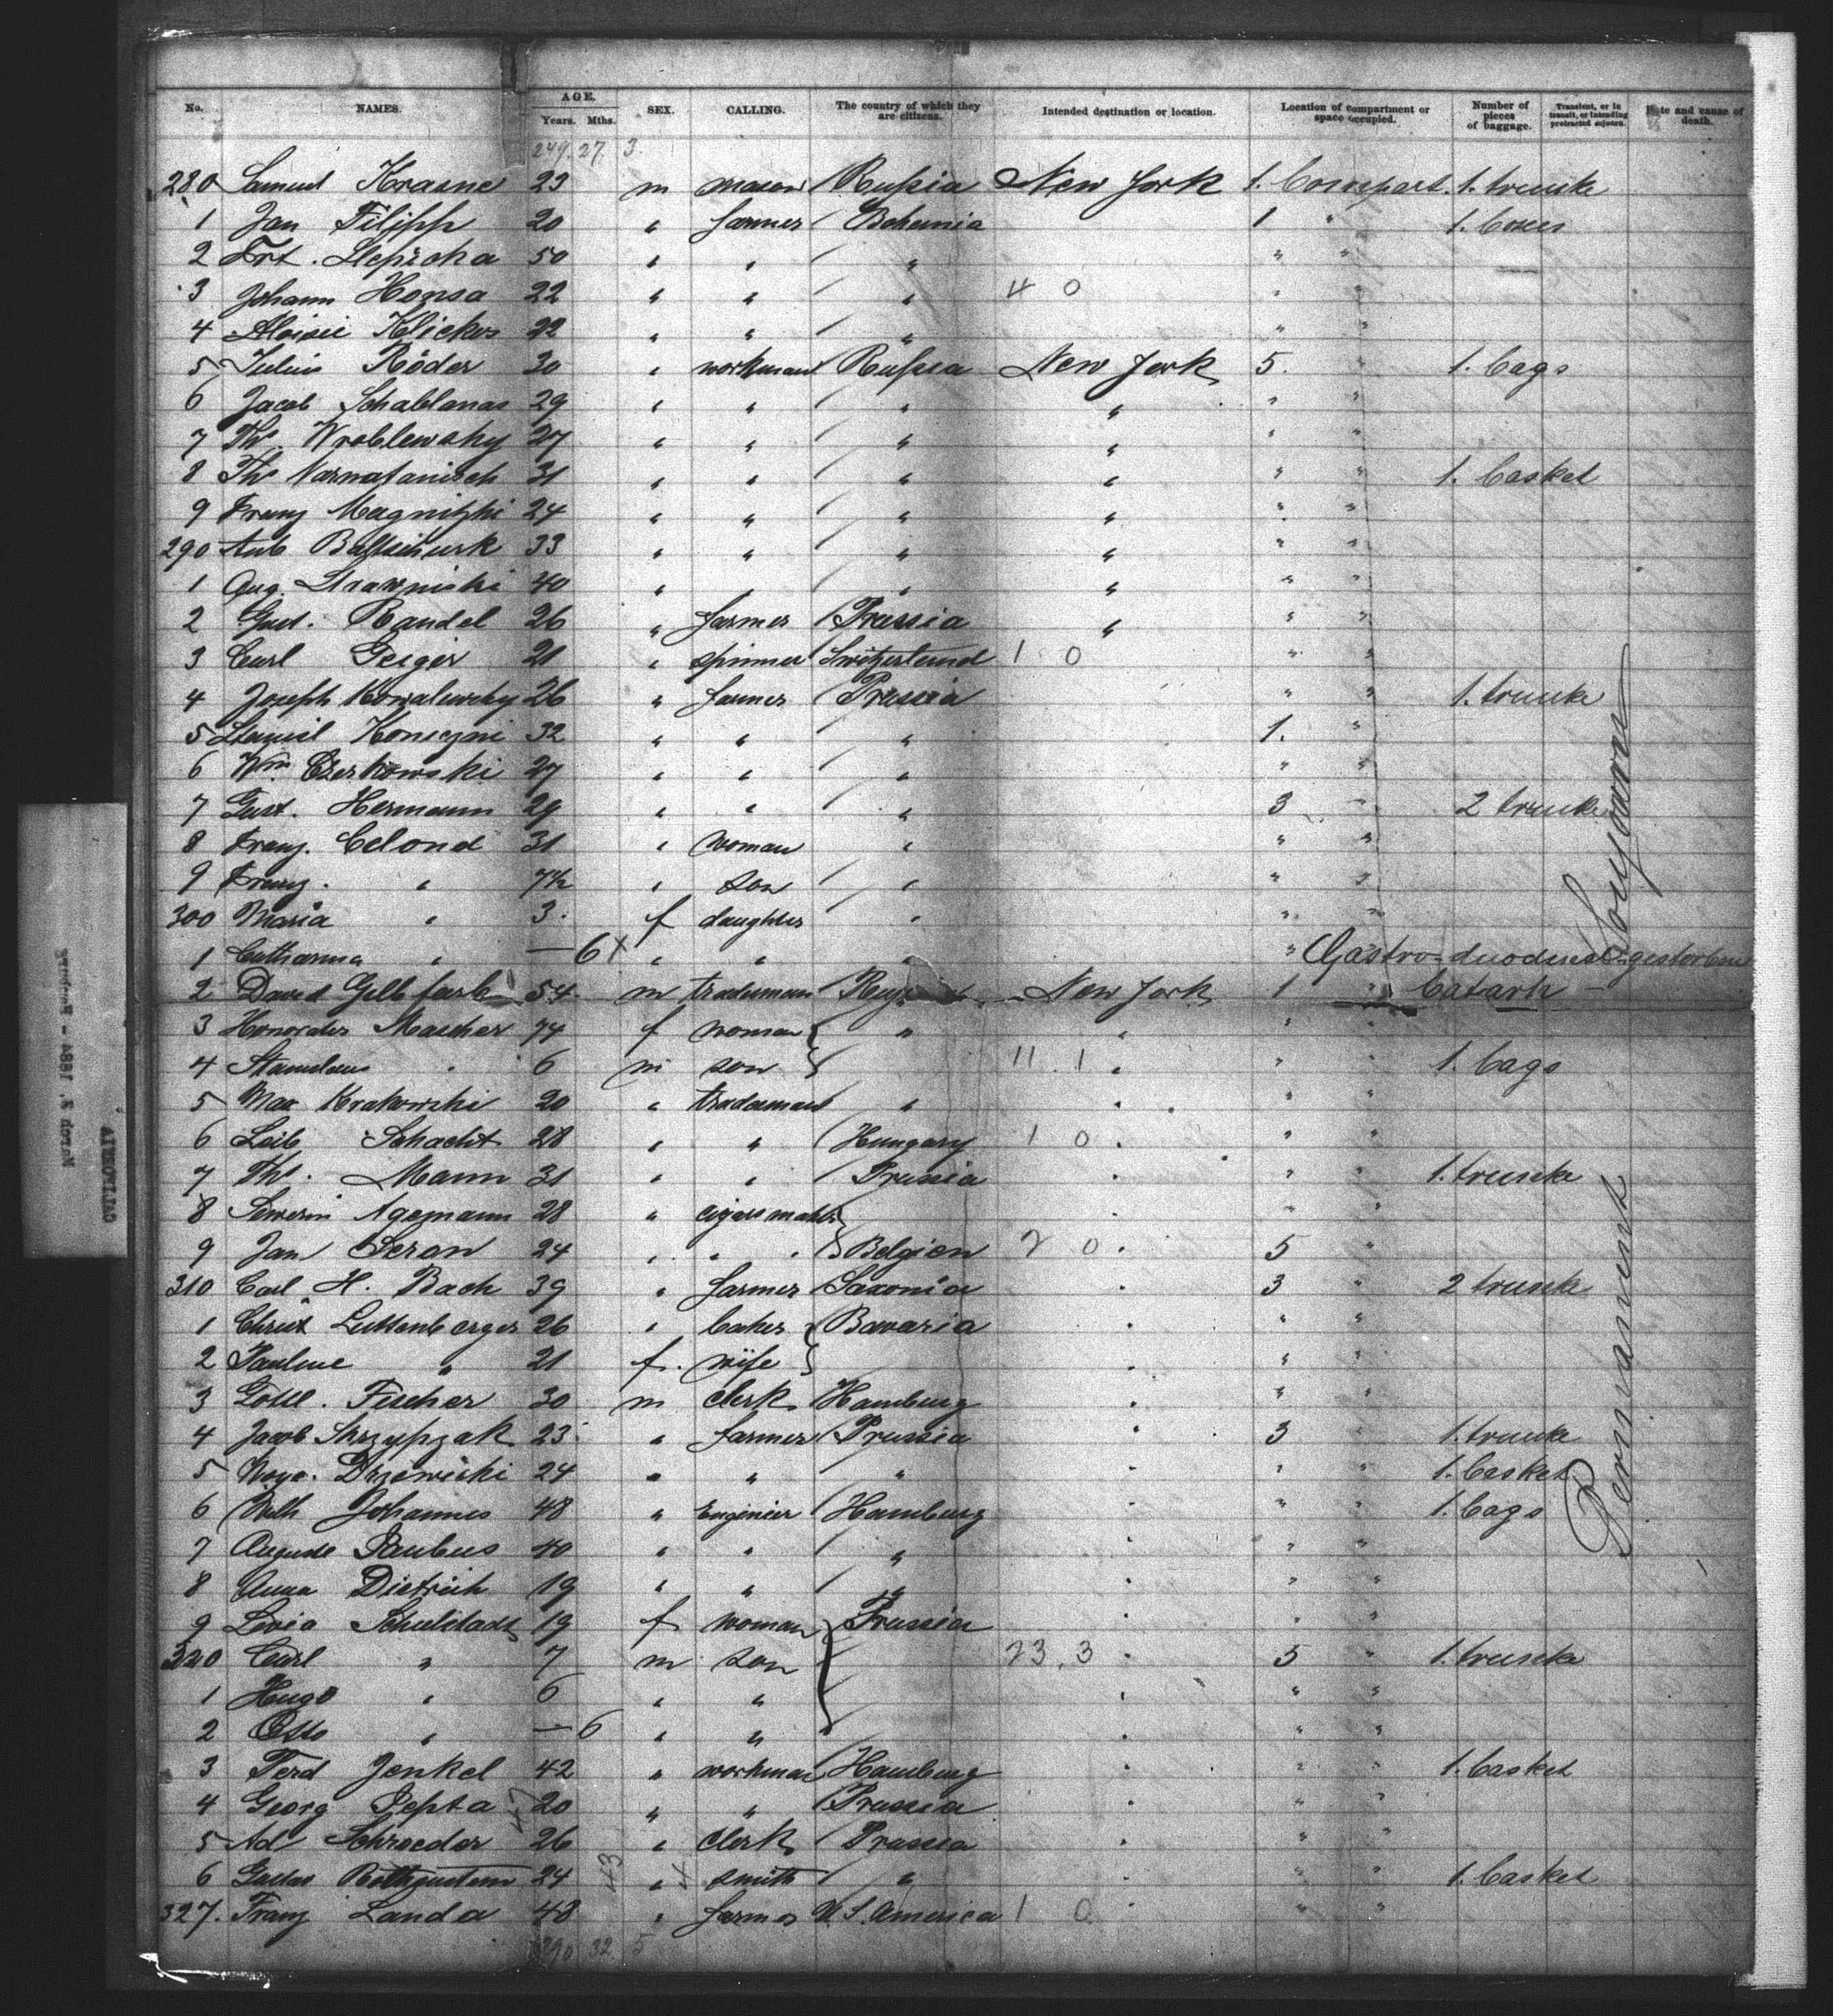 No. NAMES. AGE. Years. Mths. SEX. CALLING. The country of which they are citizens. Intended destination or location. Location of compartment or space occupied. Number of pieces of baggage. Transient, or in transit, or intending protracted sojourn. Date and cause of death.
249. 27. 3.
280 Samuel Krasne 23 m mason Rußia New York 1. Compart. 1. trunk
1 Jan Filipp 20 " farmer Bohemia 1 " 1. boxes
2 Frt. 50 " " " " "
3 Johann Honsa 22 " " " 4 0 " "
4 Aloisie Klickos 22 " " " " "
5 Julius Röder 30 " workman Rußia New York 5. " 1. bags
6 Jacob Schablanas 29 " " " " " "
7 Th. Wroblewsky 27 " " " " " "
8 Th. 31 " " " " " " 1. basket
9 Franz Magnitzki 24 " " " " " "
290 Ant 33 " " " " " "
1 Aug. 40 " " " " " "
2 Gust. Randel 26 " farmer Prussia " " "
3 Carl Geiger 21 " spinner Switzerland 1 0 " "
4 Joseph Kowalewsky 26 " farmer Prussia " " 1. trunk
5 32 " " " 1. "
6 Wm 27 " " " " "
7 Gust. Hermann 29 " " " 3 " 2 trunk
8 Franz. Celond 31 " woman " " "
9 Franz. " 7½ " son " " "
300 Maria " 3. f daughter " " "
1 Catharina " — 6 x " " " " Gastro-duodenal gestorben
2 David Gelbfarb 54 m tradesman New York 1 " Catarh —
3 Mascher 74 f woman " " " "
4 Stanislaus " 6 m son 11 1 " " " 1. bags
5 Max Krakowski 20 " tradesman " " " "
6 Leib Schacht 28 " " Hungary 1 0 " " "
7 Th. Mann 31 " " Prussia " " " 1. trunk
8 Severin Agemann 28 " cigarsmaker " " "
9 Jan Seron 24 " " Belgien 2 0 " 5 "
310 Carl H. Bach 39 " farmer Saxonia " 3 " 2 trunk
1 Christ Luttenberger 26 " baker Bavaria " " "
2 Pauline " 21 f. wife " " "
3 Gottl. Fischer 30 m clerk Hamburg " " "
4 Jacob Skrzypzak 23 " farmer Prussia " 3 " 1. trunk
5 24 " " " " " " 1. basket
6 Wilh Johannes 48 " Engenier Hamburg " " " 1. bags
7 Auguste Paubus 40 " " " " " "
8 Anna Dietrich 19 " " " " " "
9 19 f woman Prussia " " "
320 Carl " 7 m son 23. 3 " 5 " 1. trunk
1 Hugo " 6 " " " " "
2 Otto " — 6 " " " " "
3 Ferd Jenkel 42 " workman Hamburg " " " 1. basket
4 Georg Septa 20 " " Prussia " " "
5 Ad Schroeder 26 " clerk Prussia " " "
6 Gustav 24 " smith " " " " 1. basket
327. Franz Landa 48 " farmer U. S. America 1 0 " " "
290 32 5
47
43
4
Permanent
Sojourn
CALIFORNIA
March 3, 1884 - Hamburg